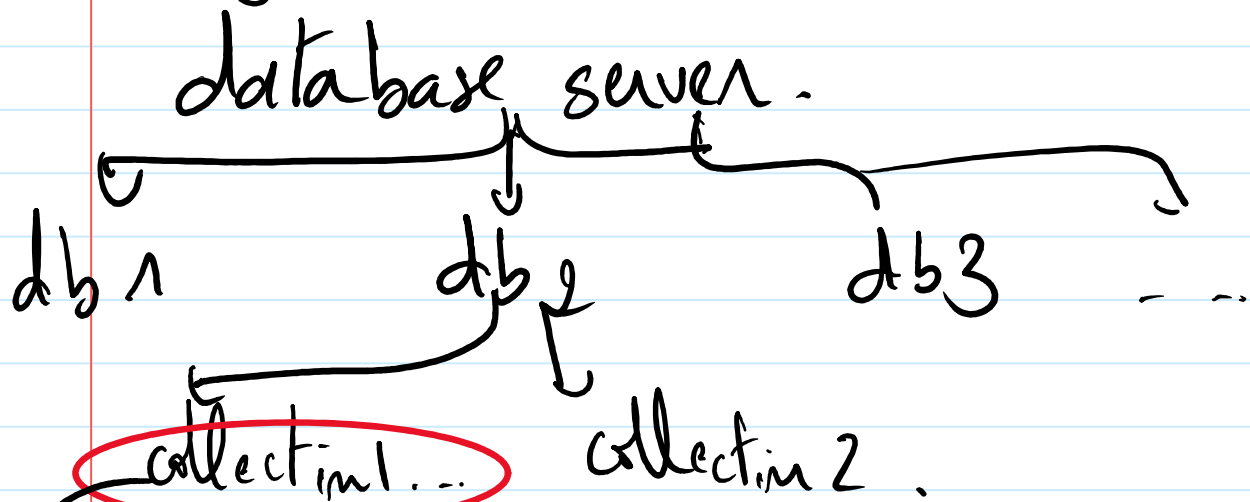 database server.
db1 db2 db3 - - - -
collection1... collection2.